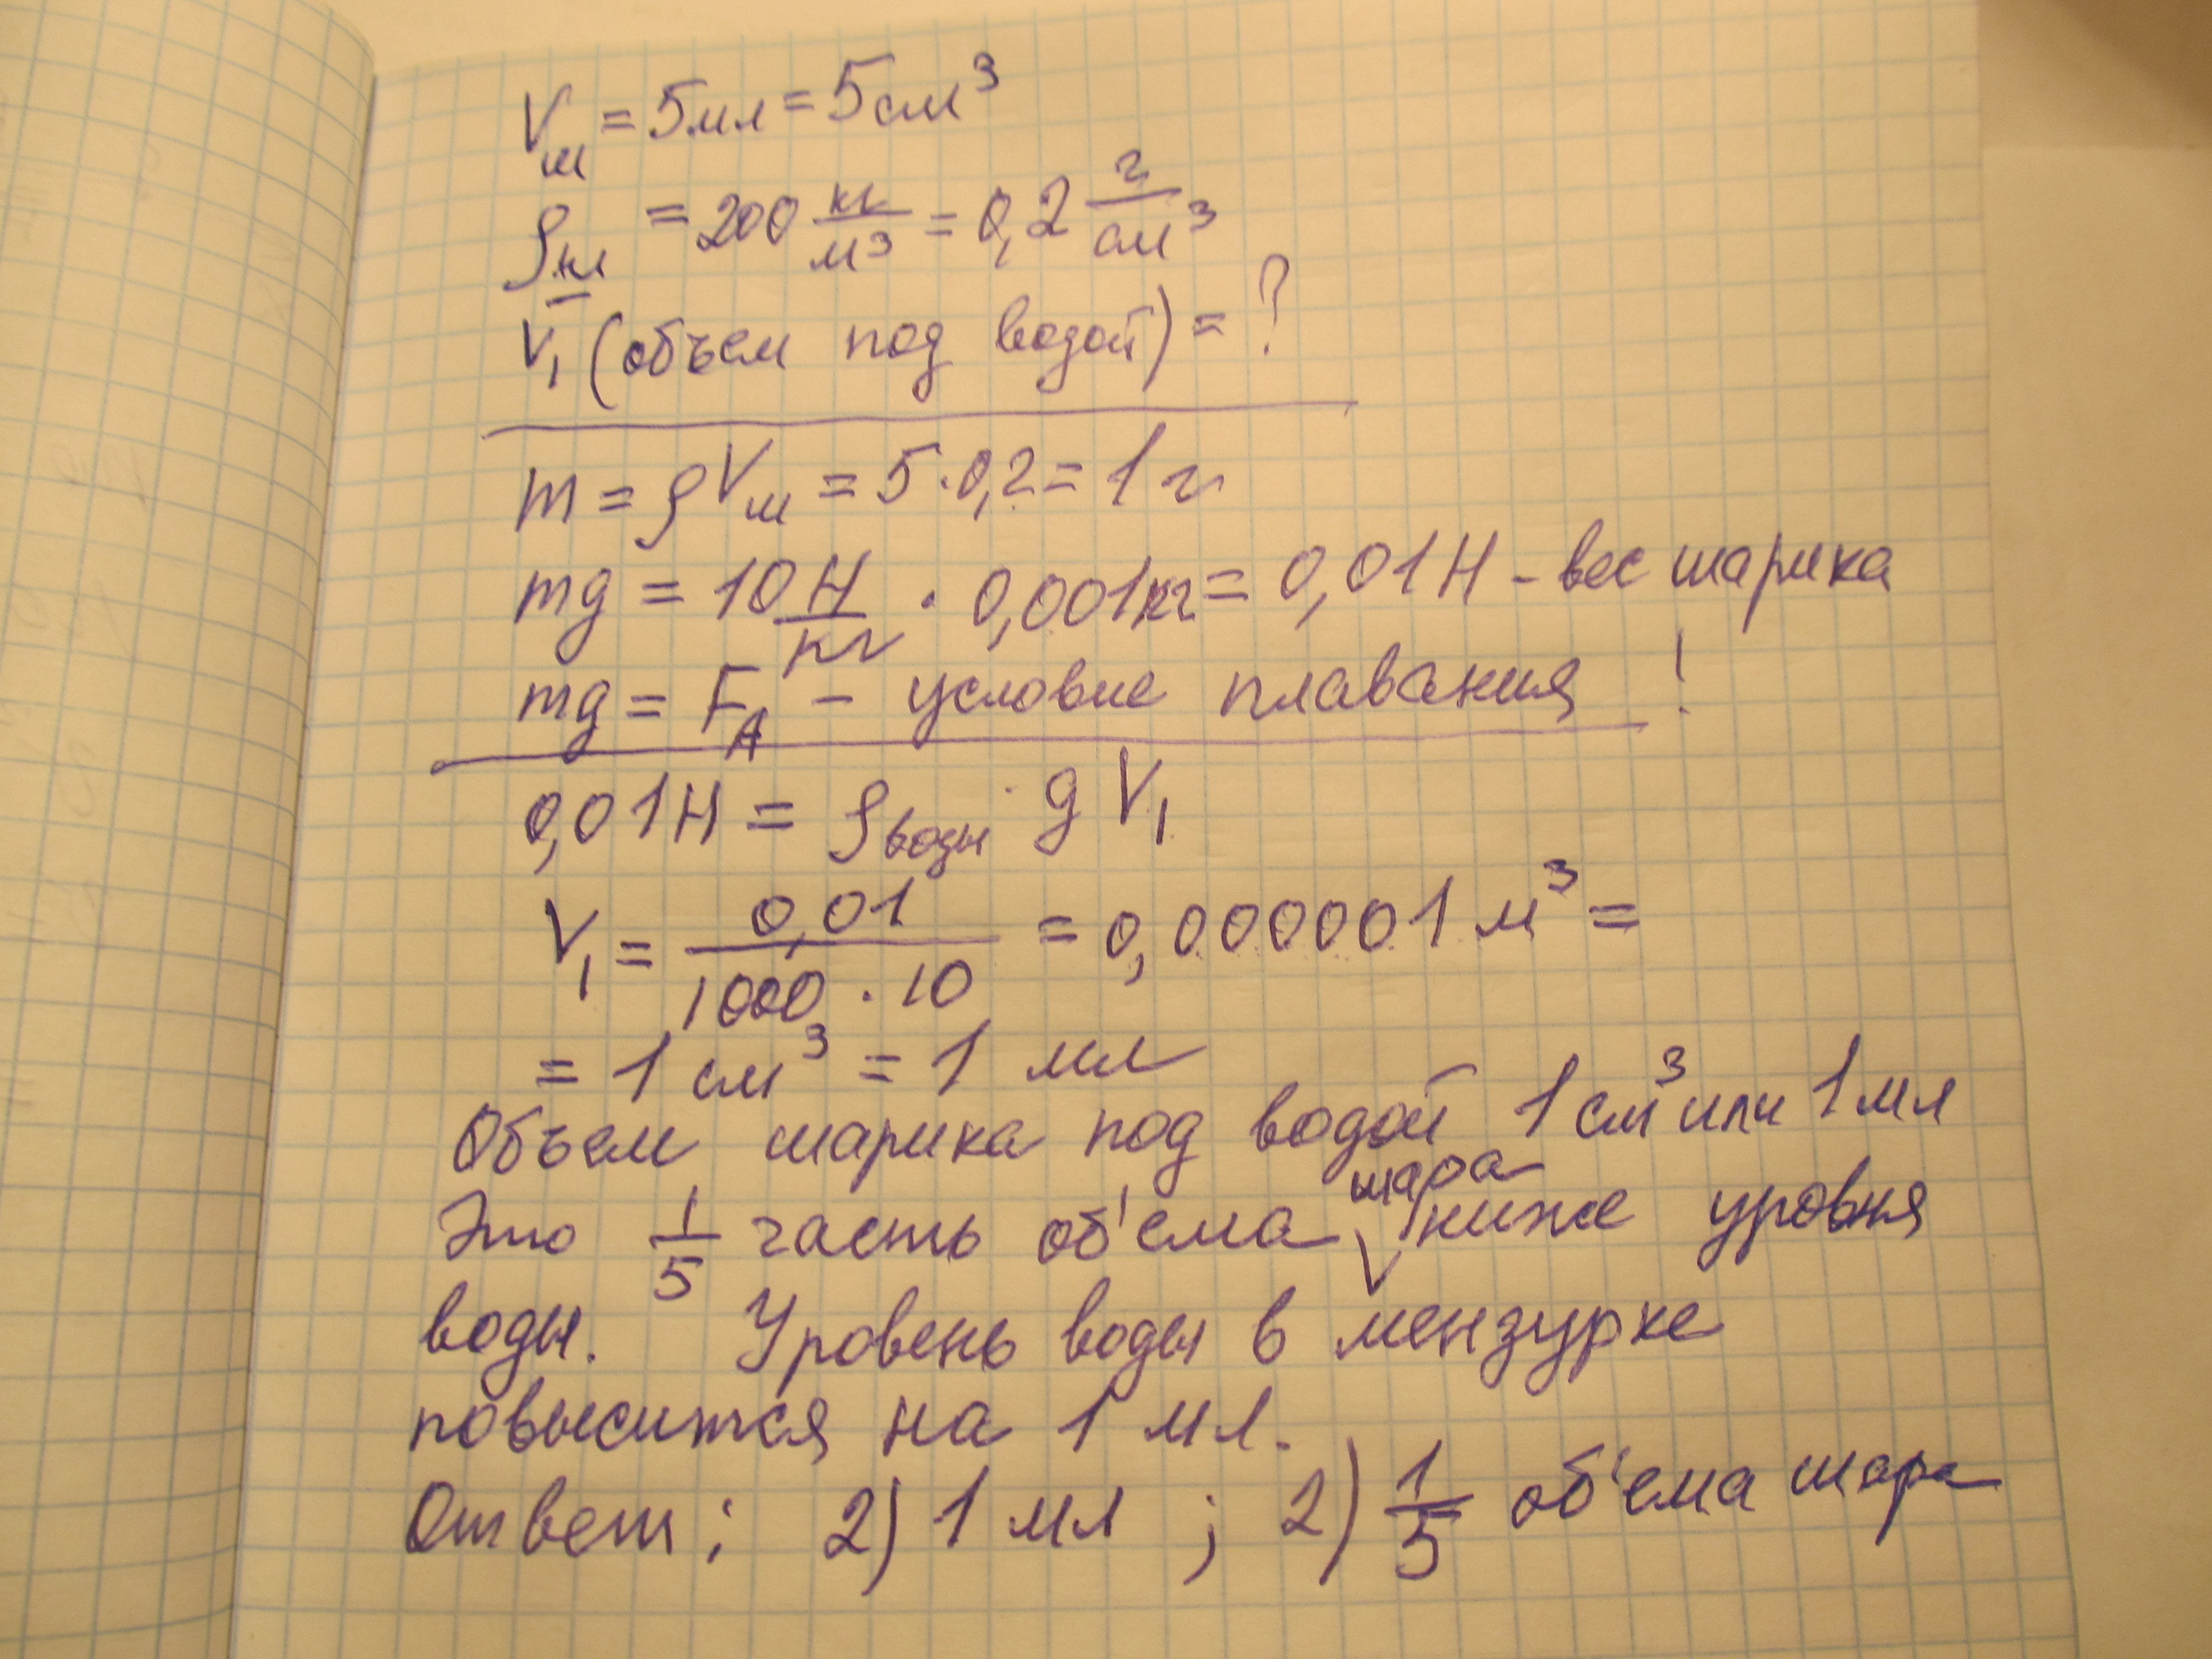 Vш = 5мл = 5см³
ρш = 200 кг/м³ = 0,2 г/см³
V₁ (объем под водой) = ?
m = ρVш = 5·0,2 = 1 г
mg = 10 Н/кг · 0,001кг = 0,01Н - вес шарика
mg = FА - условие плавания !
0,01Н = ρводы · g V₁
V₁ = 0,01/(1000 · 10) = 0,000001 м³ =
= 1 см³ = 1 мл
Объем шарика под водой 1 см³ или 1 мл
Это 1/5 часть об'ема шара ниже уровня
воды. Уровень воды в мензурке
повысится на 1 мл.
Ответ: 2) 1 мл ; 2) 1/5 об'ема шара